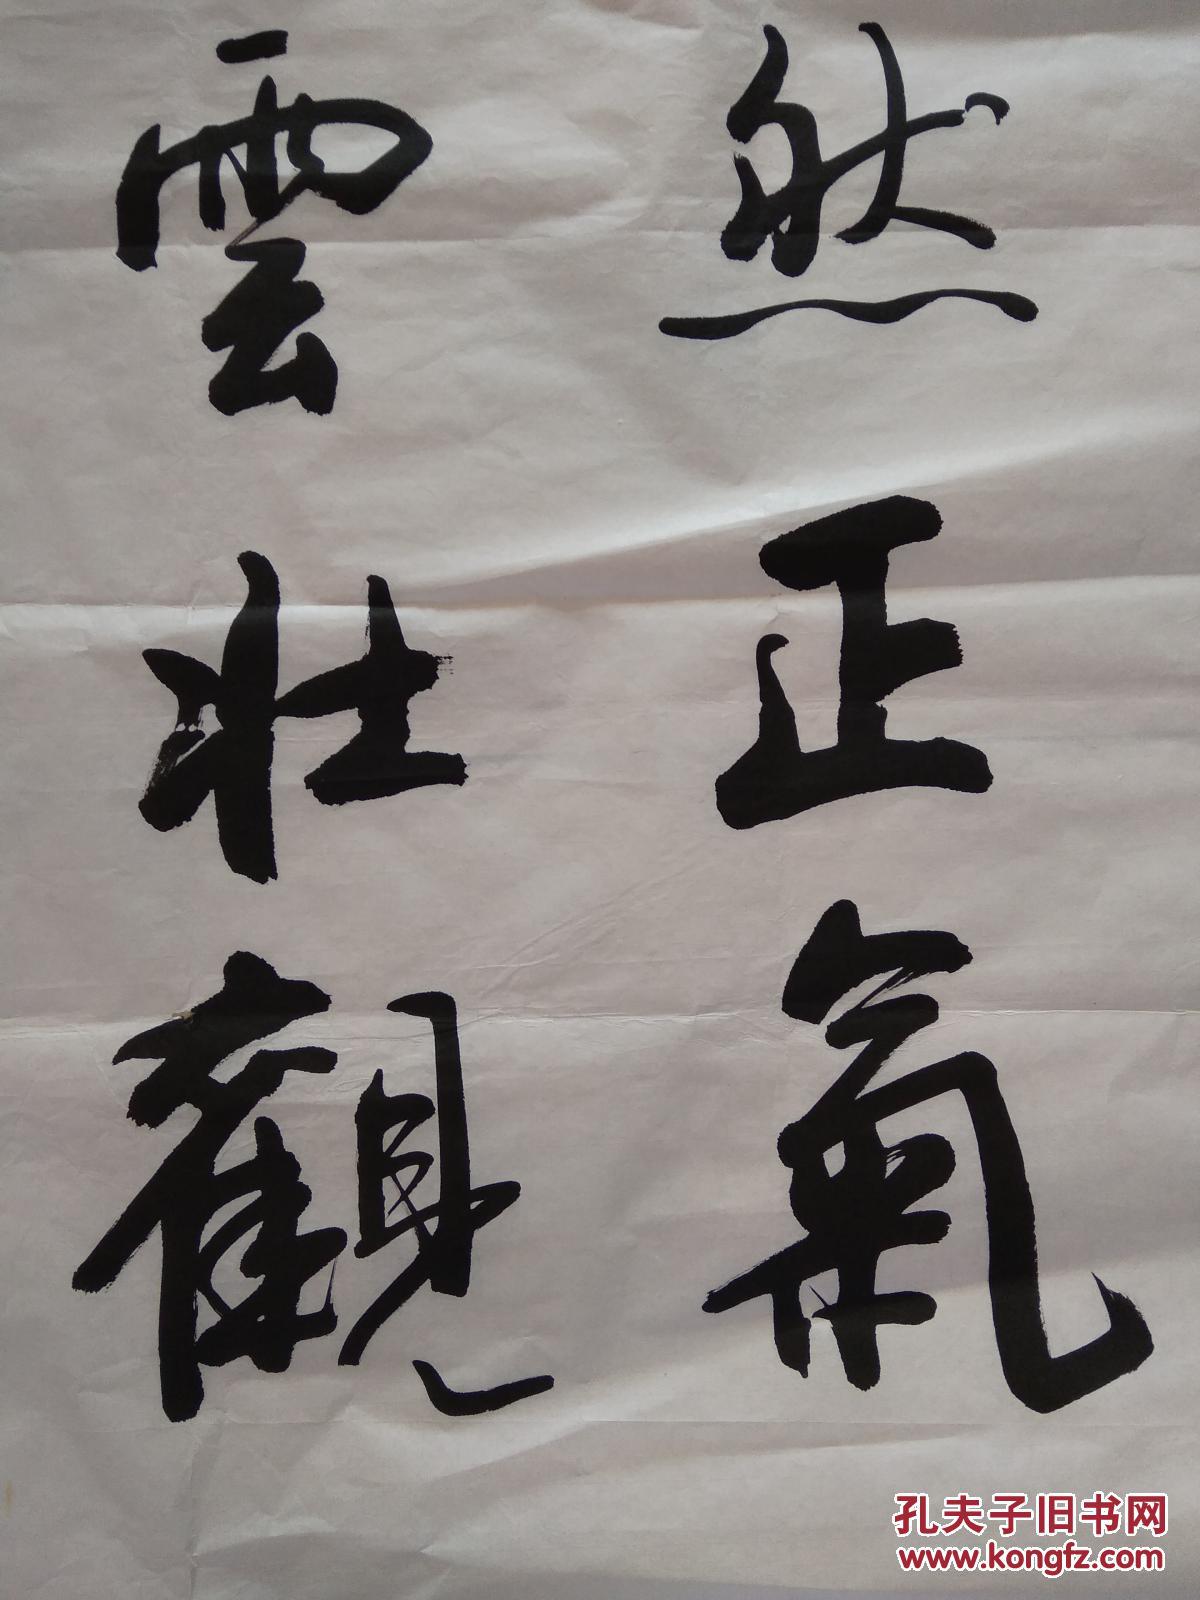 然正氣
雲壯觀
孔夫子旧书网
www.kongfz.com